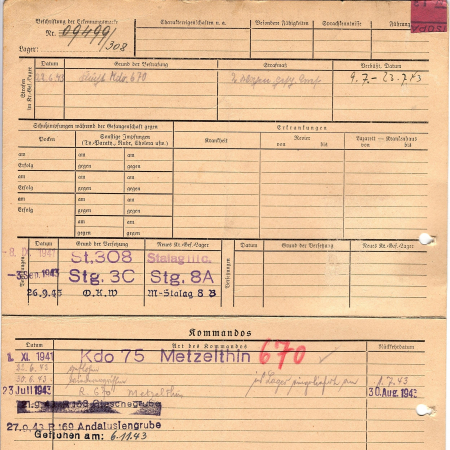 Beschriftung der Erkennungsmarke
Nr. 09499/308
Lager:
Charaktereigenschaften u. a.
Besondere Fähigkeiten
Sprachkenntnisse
Führung
Strafen im Kr.-Gef.-Lager
Datum
Grund der Bestrafung
Strafmaß
Verbüßt, Datum
22.6.43 Flucht Kdo. 670 9.7.–23.7.43
Schutzimpfungen während der Gefangenschaft gegen
Erkrankungen
Pocken
Sonstige Impfungen
(Ty.-Paraty., Ruhr, Cholera usw.)
Krankheit
Revier
von bis
Lazarett – Krankenhaus
von bis
am am am
Erfolg gegen gegen
am am am
Erfolg gegen gegen
am am am
Erfolg gegen gegen
am am
gegen gegen
Versetzungen
Datum
Grund der Versetzung
Neues Kr.-Gef.-Lager
Versetzungen
Datum
Grund der Versetzung
Neues Kr.-Gef.-Lager
1941 St.308 Stalag IIIc.
-3. Sep. 1943 Stg. 3C Stg. 8A
26.9.43 O.K.W M-Stalag 8 B
Kommandos
Datum
Art des Kommandos
Rückkehrdatum
1. XI. 1941 Kdo 75 Metzelthin 670
22.6.43 entflohen
30.6.43 8.7.43
23 Juli 1943 Metzelthin 30. Aug. 1943
27.9.43 R 169 Andalusiengrube
Geflohen am: 6.11.43